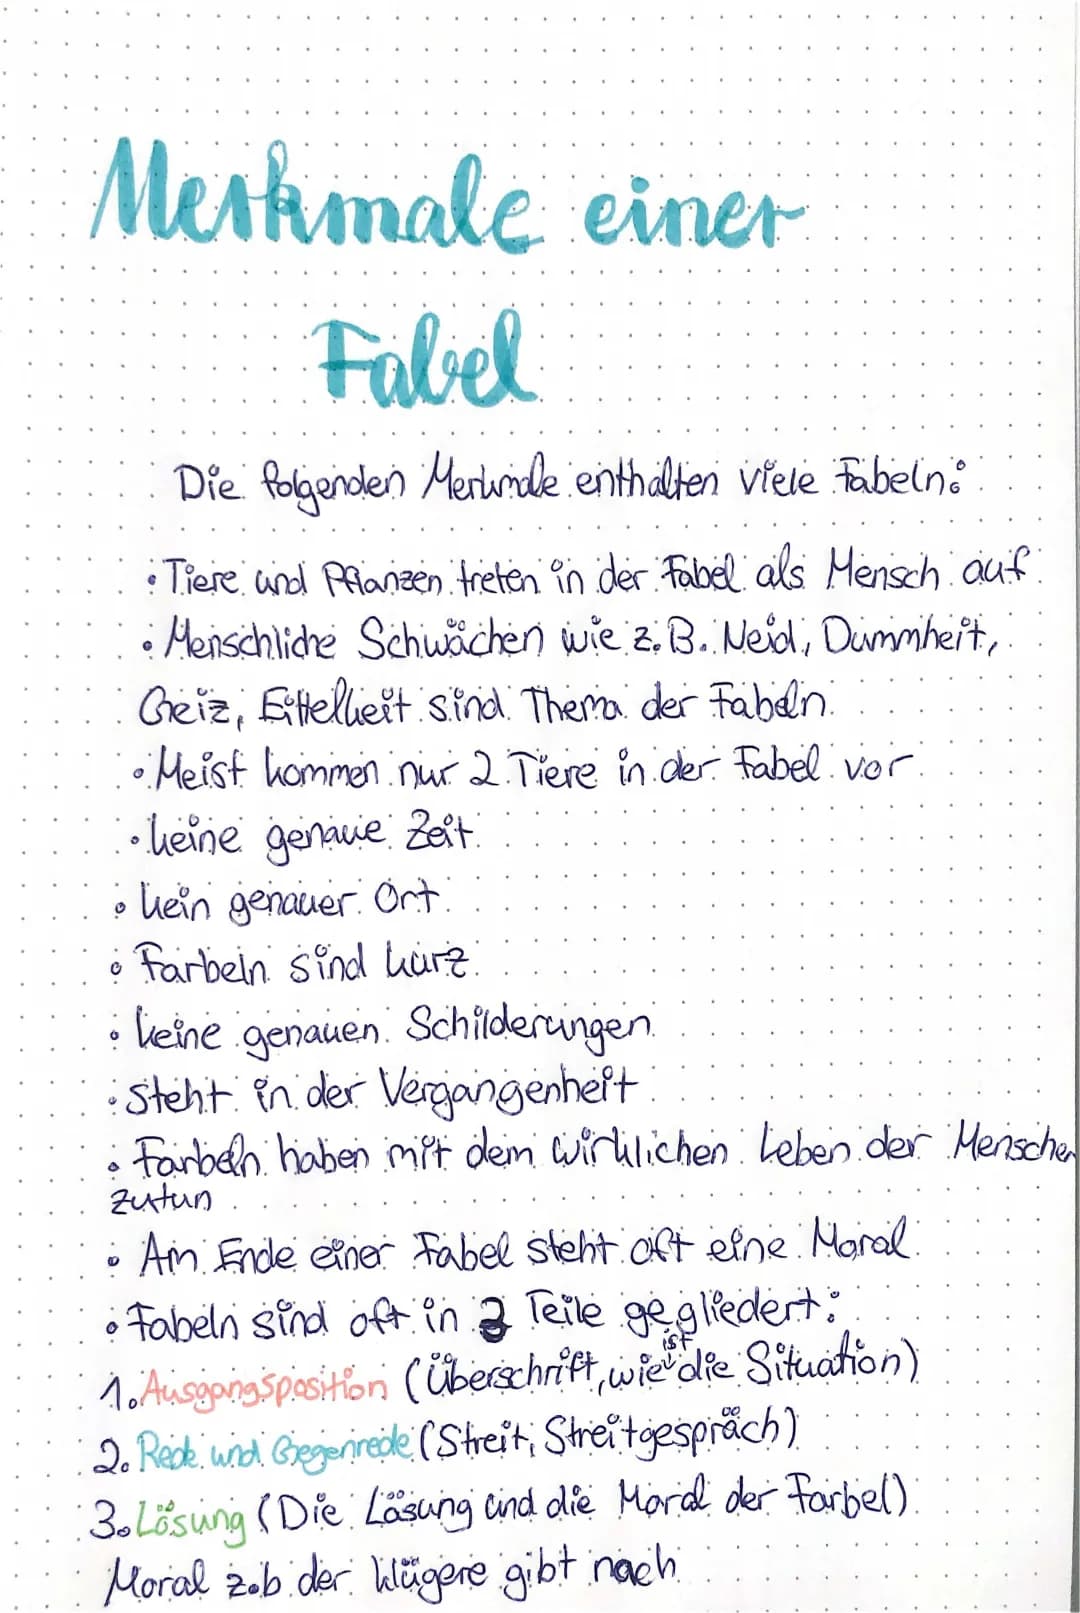 Merkmale einer
Fabel
Die folgenden Merkmale enthalten viele Fabeln:
• Tiere und Pflanzen treten in der Fabel als Mensch auf
• Menschliche Schwächen wie z.B. Neid, Dummheit,
Geiz, Eittelkeit sind Thema der Fabeln
• Meist kommen nur 2 Tiere in der Fabel vor
• keine genaue Zeit
• kein genauer Ort
• Farbeln sind kurz
• keine genauen Schilderungen
• Steht in der Vergangenheit
• Farbeln haben mit dem wirklichen Leben der Menschen
zutun
• Am Ende einer Fabel steht oft eine Moral
• Fabeln sind oft in 3 Teile gegliedert:
1. Ausgangsposition (Überschrift, wie ist die Situation)
2. Rede und Gegenrede (Streit, Streitgespräch)
3. Lösung (Die Lösung und die Moral der Farbel)
Moral z.b der Klügere gibt nach